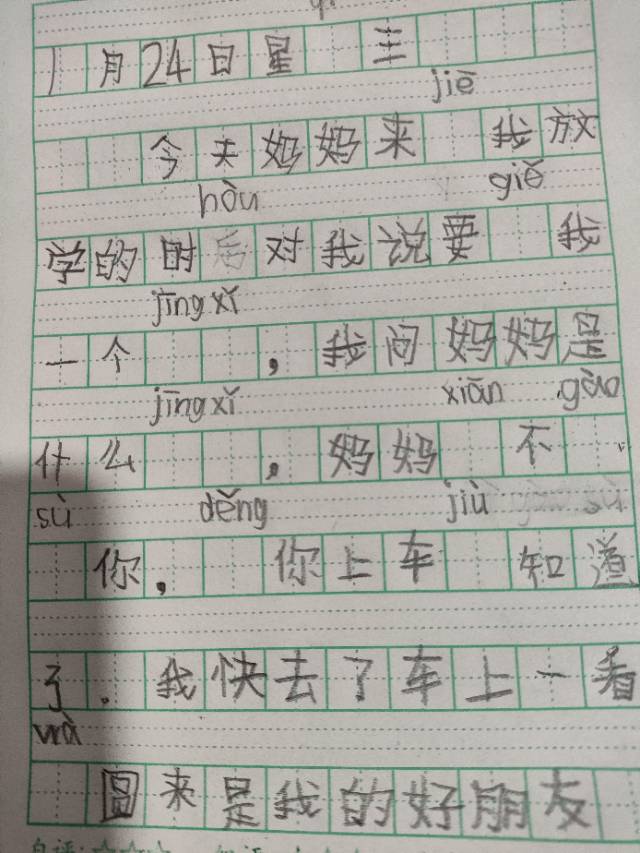 1月24日星 三
jiē
今天妈妈来 我放
hòu giě
学的时后对我说要 我
jīng xǐ
一个 ，我问妈妈是
jīng xǐ xiān gào
什么 ，妈妈 不
sù děng jiù
你， 你上车 知道
了．我快去了车上一看
wà
圆来是我的好朋友